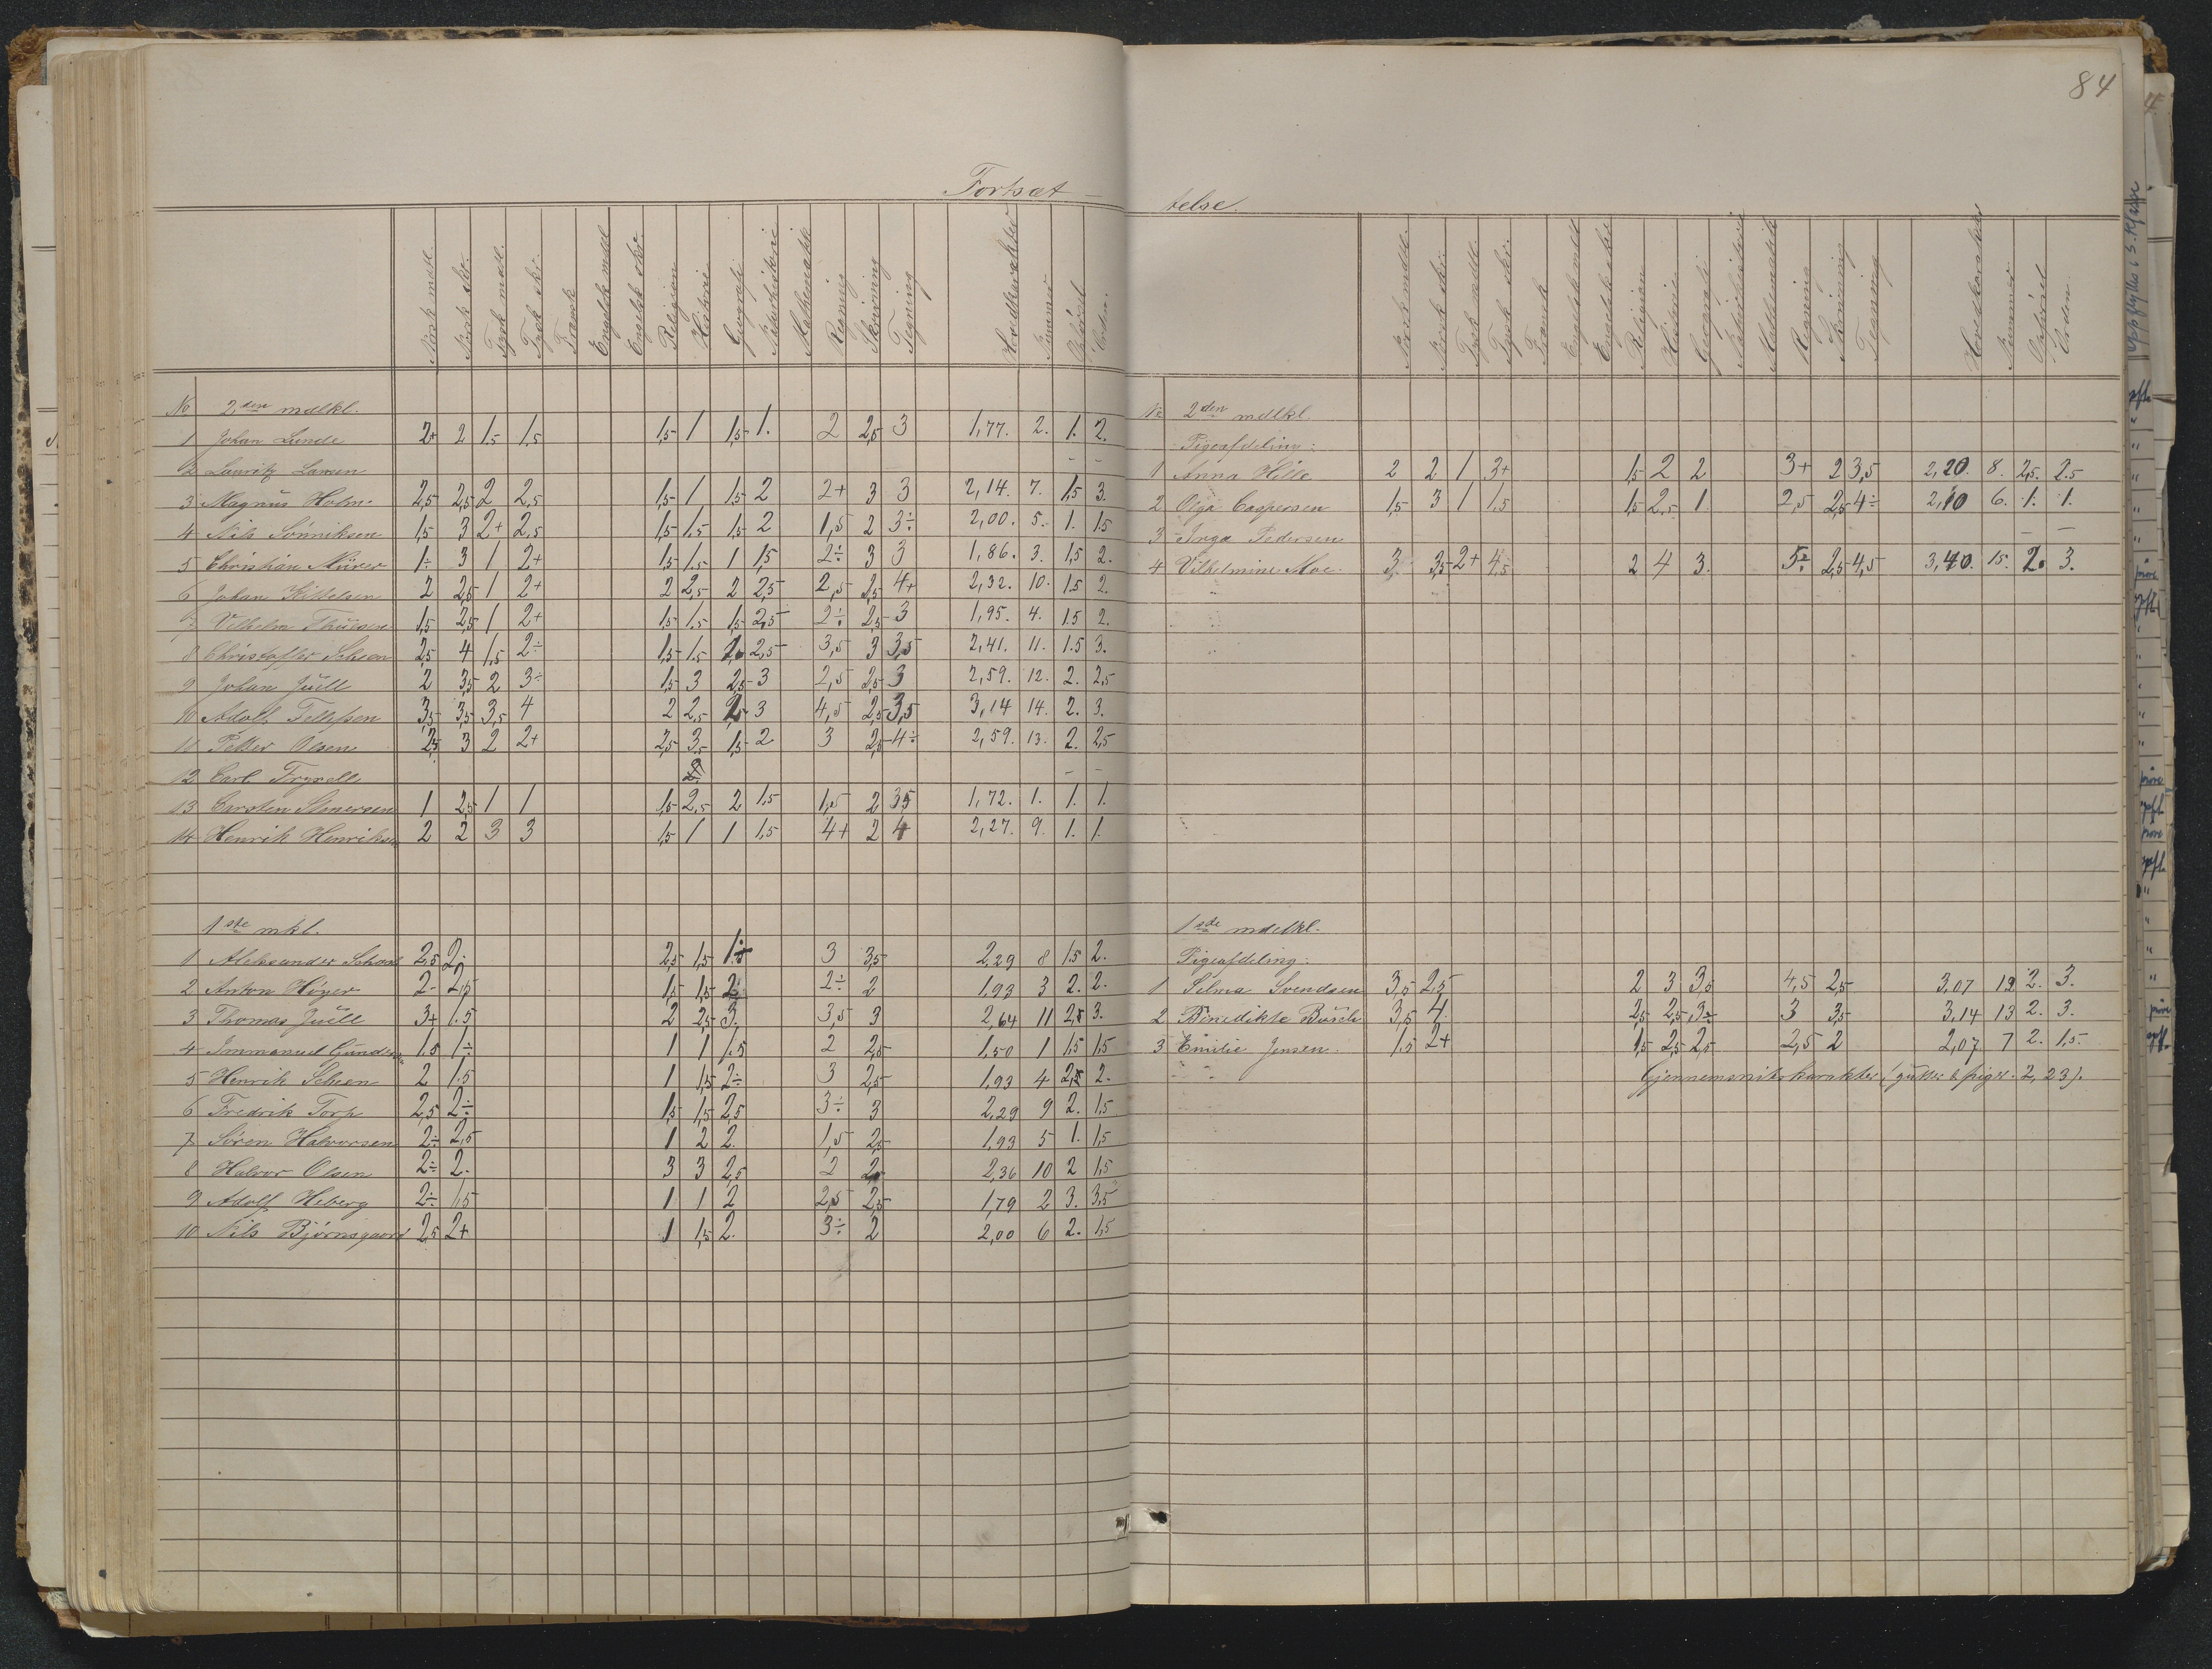 84
Fortsæt-
Norsk mdtl. Norsk skr. Tysk mdtl. Tysk skr. Fransk Engelsk mdtl Engelsk skr. Religion Historie Geografi Naturhistorie Mathematik Regning Skrivning Tegning Hovedkarakter Nummer Opførsel Orden.
No 2den mdlkl.
1 Johan Lunde 2+ 2 1,5 1,5 1,5 1 1,5 1. 2 2,5 3 1,77. 2. 1. 2.
2 Lauritz Larsen - -
3 Magnus Holm. 2,5 2,5 2 2,5 1,5 1 1,5 2 2+ 3 3 2,14. 7. 1,5 3.
4 Nils Sønniksen 1,5 3 2+ 2,5 1,5 1,5 1,5 2 1,5 2 3÷ 2,00. 5. 1. 1,5
5 Christian Mürer 1÷ 3 1 2+ 1,5 1,5 1 1,5 2÷ 3 3 1,86. 3. 1,5 2.
6 Johan Kittelsen 2 2,5 1 2+ 2 2,5 2 2,5 2,5 2,5 4+ 2,32. 10. 1,5 2.
7 Vilhelm 1,5 2,5 1 2+ 1,5 1,5 1,5 2,5 2÷ 2,5 3 1,95. 4. 1.5 2.
8 Christoffer Scheen 2,5 4 1,5 2÷ 1,5 1,5 2. 2,5 3,5 3 3,5 2,41. 11. 1.5 3.
9 Johan Juell 2 3,5 2 3÷ 1,5 3 2,5 3 2,5 2,5 3 2,59. 12. 2. 2,5
10 Adolf Tellefsen 3,5 3,5 3,5 4 2 2,5 2 3 4,5 2,5 3,5 3,14 14. 2. 3.
11 Petter Olsen 2,5 3 2 2+ 2,5 3,5 1,5 2 3 2,5 4÷ 2,59. 13. 2. 2,5
12 Carl Fryxell - -
13 Carsten Simersen 1 2,5 1 1 1,5 2,5 2 1,5 1,5 2 3,5 1,72. 1. 1. 1.
14 Henrik Henriksen 2 2 3 3 1,5 1 1 1,5 4+ 2 4 2,27. 9. 1. 1.
1ste mkl.
1 Aleksander 2,5 2÷ 2,5 1,5 1÷ 3 3,5 2,29 8 1,5 2.
2 Anton Høyer 2- 2,5 1,5 1,5 2÷ 2÷ 2 1,93 3 2. 2.
3 Thomas Juell 3+ 1.5 2 2,5 3. 3,5 3 2,64 11 2,5 3.
4 Immanuel 1.5 1÷ 1 1 1,5 2 2,5 1,50 1 1,5 1,5
5 Henrik Scheen 2 1.5 1 1,5 2÷ 3 2,5 1,93 4 2,5 2.
6 Fredrik Torp 2,5 2÷ 1,5 1,5 2,5 3÷ 3 2,29 9 2. 1,5
7 Søren Halvorsen 2÷ 2,5 1 2 2. 1,5 2,5 1,93 5 1. 1,5
8 Halvor Olsen 2÷ 2. 3 3 2,5 2 2 2,36 10 2 1,5
9 Adolf Heberg 2÷ 1,5 1 1 2 2,5 2,5 1,79 2 3. 3,5
10 Nils Bjørnsgaard 2,5 2+ 1 1,5 2. 3÷ 2 2,00 6 2. 1,5
telse.
Norsk mdtl. Norsk skr. Tysk mdtl. Tysk skr. Fransk Engelsk mdtl Engelsk skr Religion Historie Geografi Naturhistorie Mathematik Regning Skrivning Tegning Hovedkarakter Nummer Opførsel Orden
No 2den mdlkl.
Pigeafdeling:
1 Anna Hille 2 2 1 3+ 1,5 2 2 3+ 2 3,5 2,20. 8. 2,5. 2.5
2 Olga Caspersen 1,5 3 1 1,5 1,5 2,5 1 2,5 2,5 4÷ 2,10 6. 1. 1.
3 Inga Pedersen - -
4 Vilhelmine Moe. 3 3,5 2+ 4,5 2 4 3. 5÷ 2,5 4,5 3,40. 15. 2. 3.
1ste mdlkl.
Pigeafdeling:
1 Selma Svendsen 3,5 2,5 2 3 3,5 4,5 2,5 3,07 12 2. 3.
2 Benedikte Busch 3,5 4. 2,5 2,5 3÷ 3 3,5 3,14 13 2. 3.
3 Emilie Jensen. 1.5 2+ 1,5 2,5 2,5 2,5 2 2,07 7 2. 1,5.
Gjennemsnitskarakter (gutter & piger. 2,23).